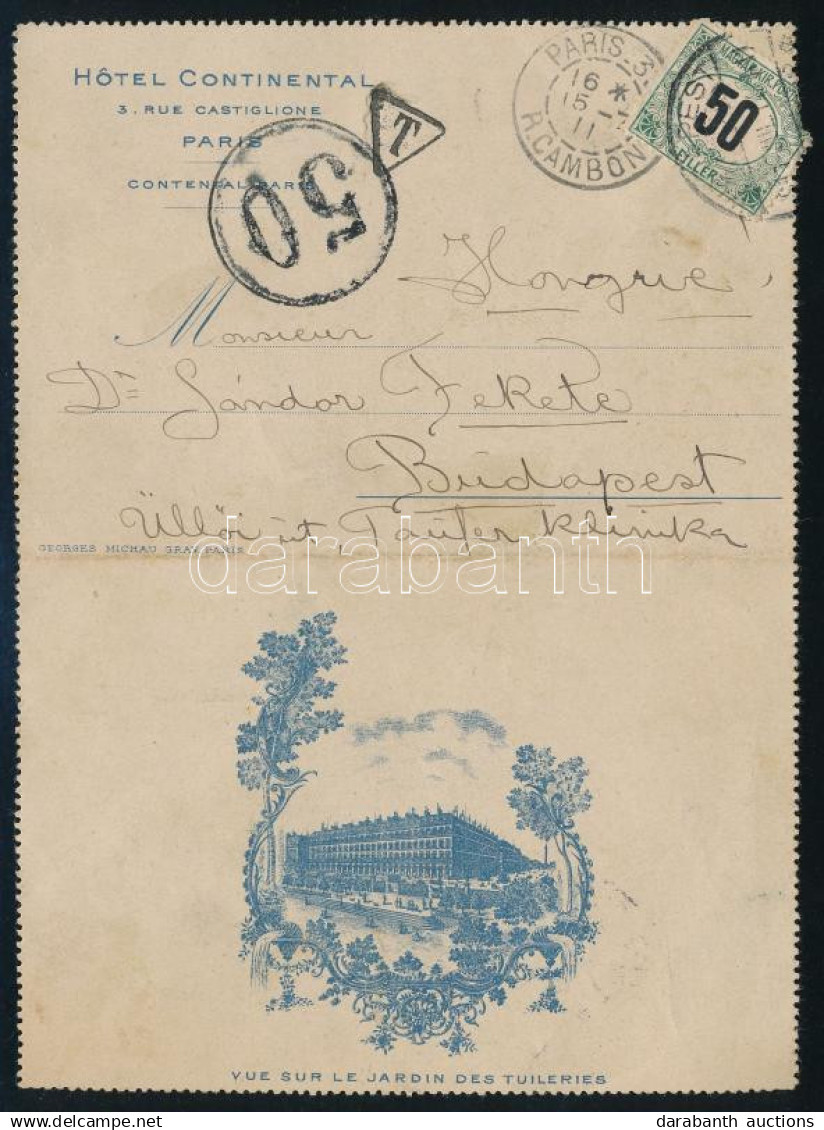 HÔTEL CONTINENTAL
3, RUE CASTIGLIONE
PARIS
CONTENTAL-PARIS
T
50
PARIS_3
16 *
15 -
11
R. CAMBON
50
FILLÉR
Hongrie
Monsieur
Dr Sándor Fekete
Budapest
Üllői út, Tauffer klinika
GEORGES MICHAU GRAV. PARIS
darabanth
VUE SUR LE JARDIN DES TUILERIES
www.delcampe.net
darabanth auctions